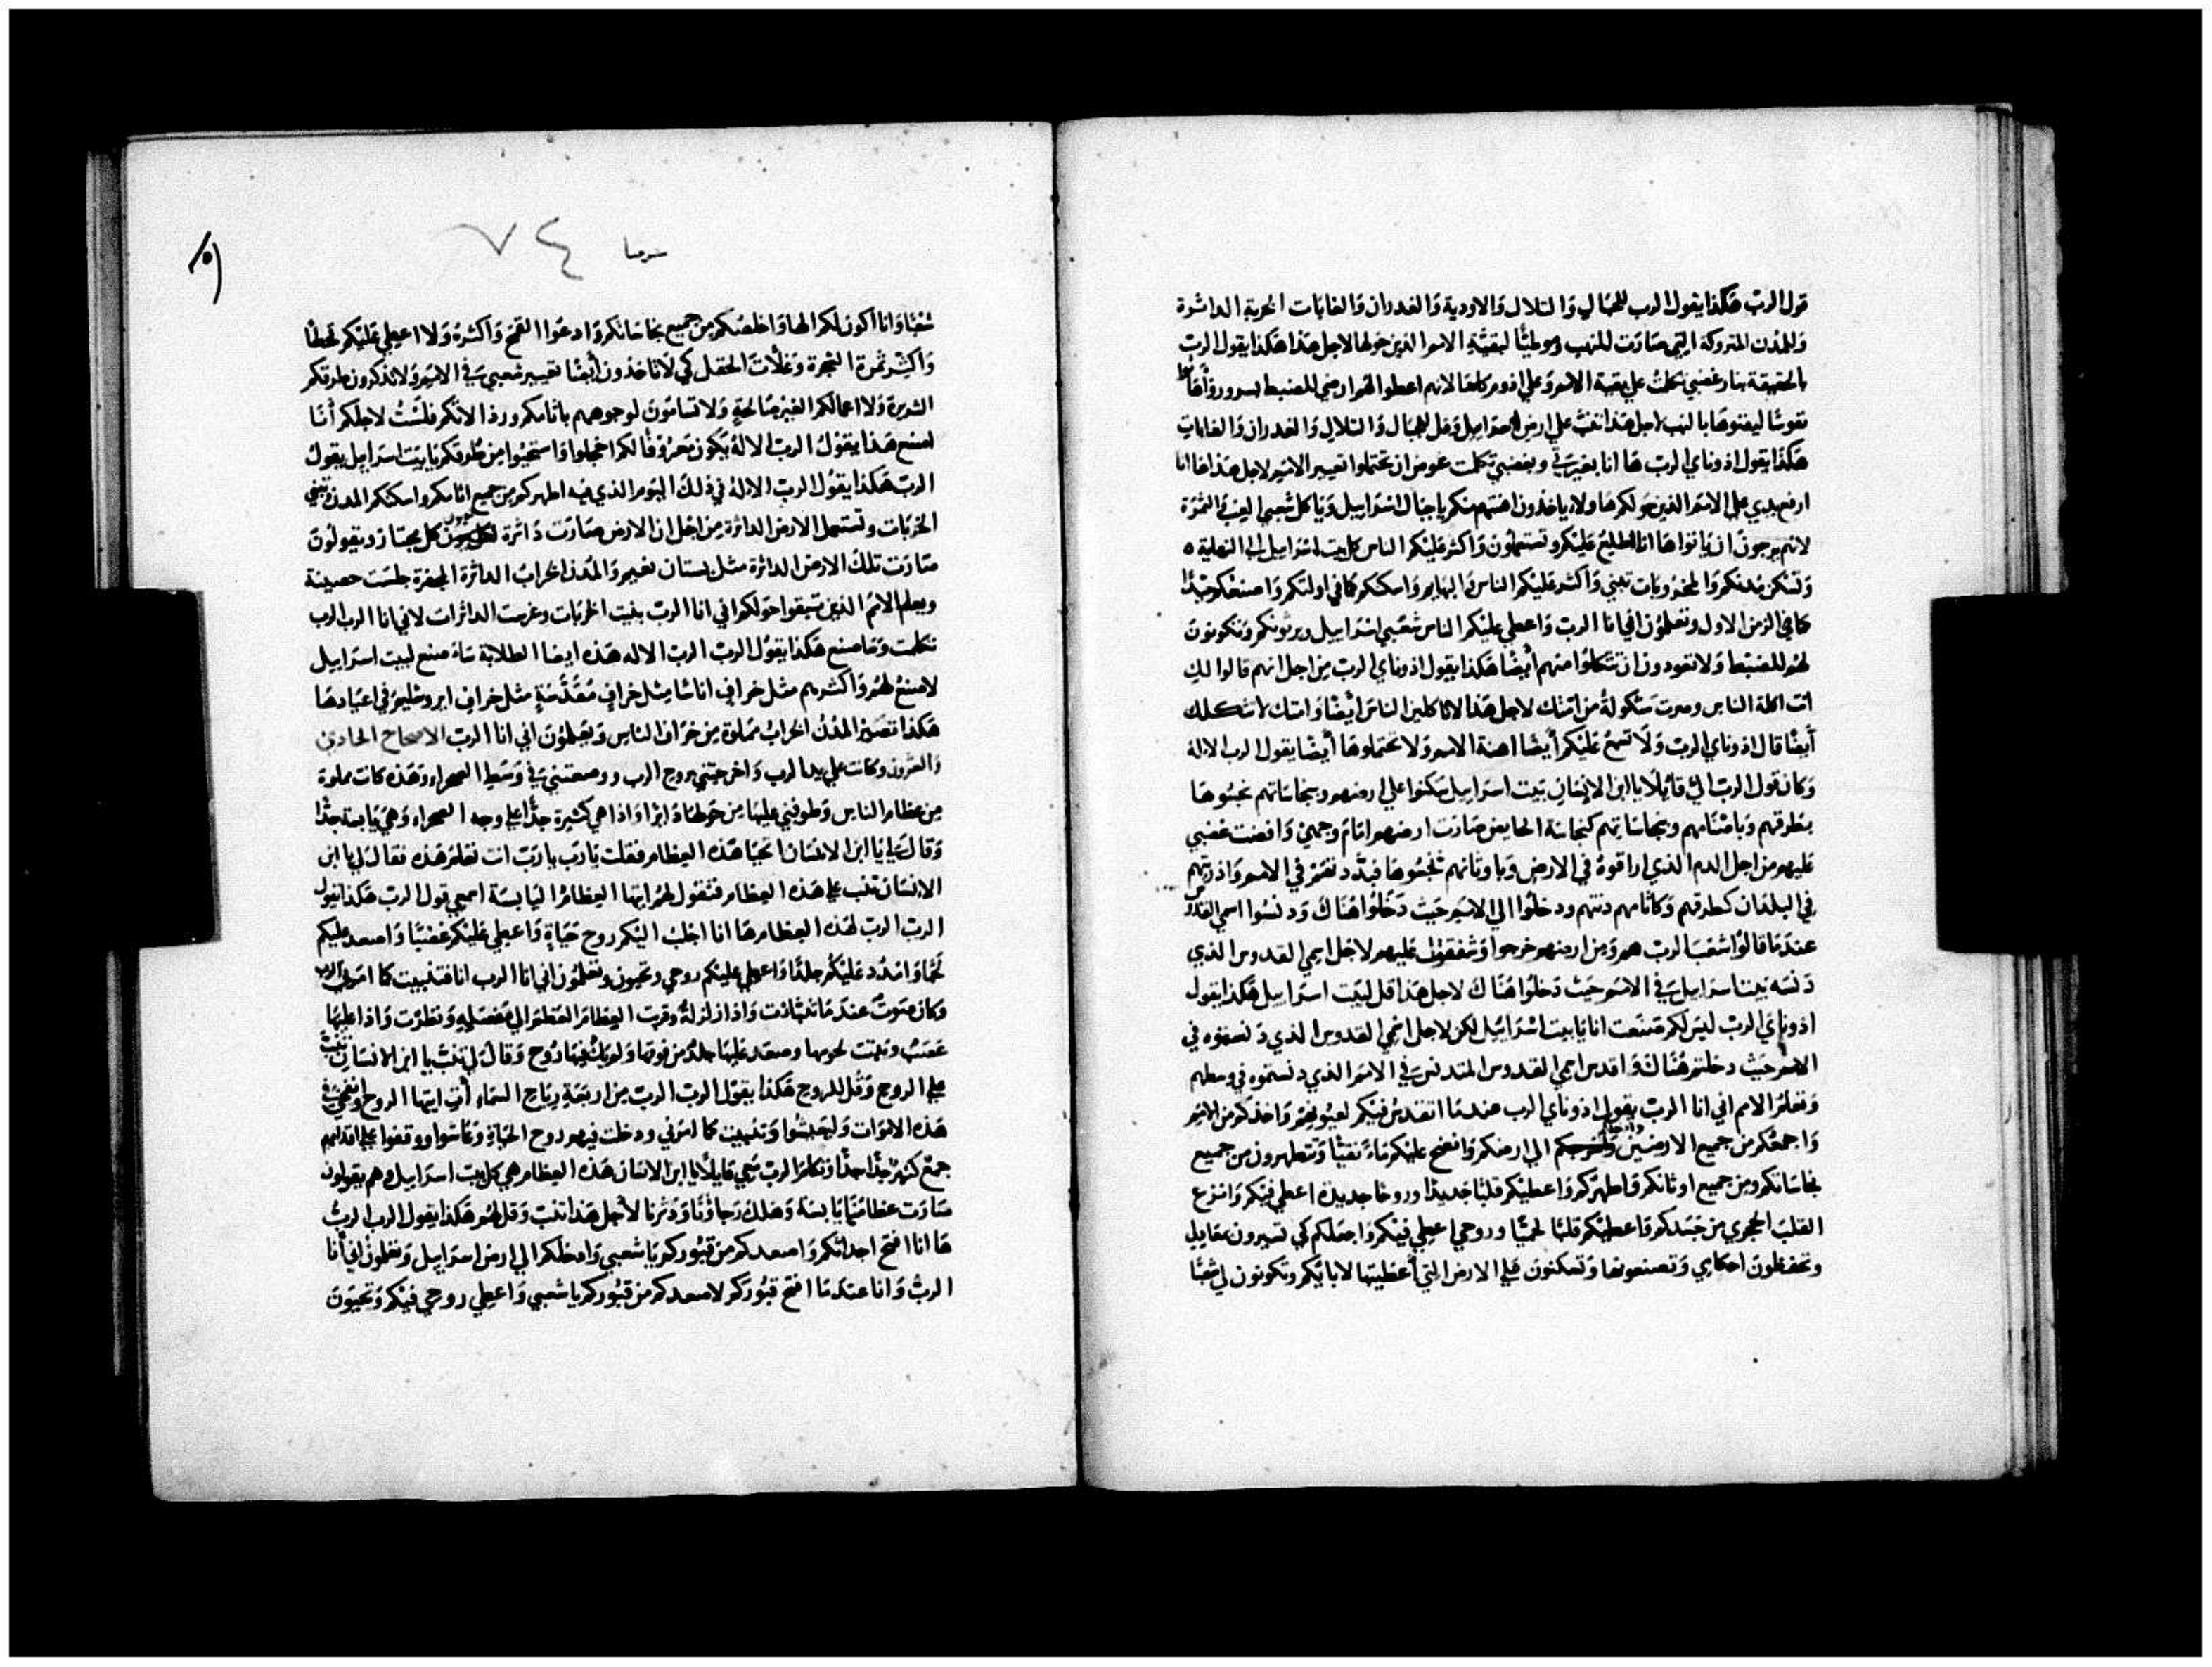 قول الرب هكذا يقول الرب للجبال والتلال والاودية والغدران والغابات الخربة الداثرة
والمدن المتروكة التي صارت للنهب وموطيًا لبقية الامم الذين حولها لاجل هذا هكذا يقول الرب
بالحقيقة بنار غضبي تكلمت علي بقية الامم وعلي ادوم كلها لانهم اعطوا لهم ارضي للضبط بسرور واهانوا
نفوسًا ليفنوها بالنهب لاجل هذا تنب علي ارض اسراييل وقل للجبال والتلال والغدران والغابات
هكذا يقول ادوناي الرب ها انا بغيرتي وبغضبي تكلمت عوض ان تحتملوا تعيير الامم لاجل هذا ها انا
ارفع يدي علي الامم الذين حولكم هاولاء ياخذون اهنتهم منكم يا جبال اسراييل ويا كل شعبي العنب والثمرة
لانهم يرجون ان ياتوا ها انا اطلع عليكم وتستعملون واكثر عليكم الناس كل بيت اسراييل الي النهاية
وتسكن مدنكم والمخروبات تبني واكثر عليكم الناس والبهايم واسكنكم كما في اولتكم واصنعكم جيدًا
كما في الزمن الاول وتعلمون اني انا الرب واعطي عليكم الناس شعبي اسراييل ويرثونكم وتكونون
لهم للضبط ولا تعودون ان تتكلوا منهم ايضًا هكذا يقول ادوناي الرب من اجل انهم قالوا لك
انت اكلة الناس وصرت مثكولة من امتك لاجل هذا لا تاكلين الناس ايضًا وامتك لا تثكلك
أيضًا قال ادوناي الرب ولا تسمع عليكم أيضًا اهنة الامم ولا تحتملوها أيضًا يقول الرب الاله
وكان قول الرب الي قايلًا يا ابن الانسان بيت اسراييل سكنوا علي ارضهم وبنجاساتهم نجسوها
بطرقهم وباصنامهم وبنجاساتهم كنجاسة الحايض صارت ارضهم امام وجهي وافضت غضبي
عليهم من اجل الدم الذي اراقوه في الارض وباوثانهم نجسوها فبددتهم في الامم واذريتهم
في البلدان كطرقهم وكاثامهم دنتهم ودخلوا الي الامم حيث دخلوا هناك ودنسوا اسمي القدوس
عندما قالوا شعب الرب هم ومن ارضهم خرجوا وشفقت عليهم لاجل اسمي القدوس الذي
دنسه بيت اسراييل في الامم حيث دخلوا هناك لاجل هذا قل لبيت اسراييل هكذا يقول
ادوناي الرب ليس لكم صنعت انا يا بيت اسراييل لكن لاجل اسمي القدوس الذي دنستموه في
الامم حيث دخلتم هناك واقدس اسمي القدوس المتدنس في الامم الذي دنستموه في وسطهم
وتعلم الامم اني انا الرب يقول ادوناي الرب عندما اتقدس فيكم لعيونهم واخذكم من الامم
واجمعكم من جميع الارضين وادخلكم الي ارضكم وانضح عليكم ماءً نقيًا وتتطهرون من جميع
نجاساتكم ومن جميع اوثانكم واطهركم واعطيكم قلبًا جديدًا وروحًا جديدة اعطي فيكم وانزع
القلب الحجري من جسدكم واعطيكم قلبًا لحميًا وروحي اعطي فيكم واجعلكم كي تسيرون بحقايق
وتحفظون احكامي وتصنعونها وتسكنون علي الارض التي أعطيتها لابايكم وتكونون لي شعبًا
٧٤
شعبًا وانا اكون لكم الها واخلصكم من جميع نجاساتكم وادعوا القمح واكثره ولا اعطي عليكم قحطًا
واكثر ثمرة الشجرة وغلات الحقل كي لا تاخذون أيضًا تعيير شعبي في الامم ولا تذكرون طرقكم
الشريرة ولا اعمالكم الغير صالحة ولا تسامون لوجوههم باثامكم ورذالاتكم فلست لاجلكم أنا
اصنع هذا يقول الرب الاله يكون معروفًا لكم اخجلوا واستحيوا من طرقكم يا بيت اسراييل يقول
الرب هكذا يقول الرب الاله في ذلك اليوم الذي فيه اطهركم من جميع اثامكم واسكنكم المدن وتبني
الخربات وتستعمل الارض الداثرة من اجل ان الارض صارت داثرة لعيون كل مجتاز ويقولون
صارت تلك الارض الداثرة مثل بستان نعيم والمدن الخراب الداثرة المحفرة جلست حصينة
ويعلم الامم الذين تبقوا حولكم اني انا الرب بنيت الخربات وغرست الداثرات لاني انا الرب الرب
تكلمت وساصنع هكذا يقول الرب الرب الاله هذه ايضا الطلابة ساصنع لبيت اسراييل
لاصنع لهم واكثرهم مثل خراف اناسًا مثل خراف مقدسة مثل خراف ايروشليم في اعيادها
هكذا تصير المدن الخراب مملوة من خراف الناس ويعلمون اني انا الرب الاصحاح الحادي
والعشرون وكانت علي يد الرب واخرجتني بروح الرب ووضعتني في وسط الصحراء وهذه كانت مملوة
من عظام الناس وطوفني عليها من حولها دايرًا واذا هي كثيرة جدًا علي وجه الصحراء وهي يابسة جدًا
وقال لي يا ابن الانسان اتحيا هذه العظام فقلت يا رب يا رب انت تعلم هذه فقال لي يا ابن
الانسان تنب علي هذه العظام فتقول لهم ايتها العظام اليابسة اسمعي قول الرب هكذا يقول
الرب الرب لهذه العظام ها انا اجلب اليكم روح حياة واعطي عليكم عصبًا واصعد عليكم
لحمًا وامدد عليكم جلدًا واعطي عليكم روحي وتحيون وتعلمون اني انا الرب انا فتنبيت كما امرني الرب
وكان صوت عندما تنبات واذا زلزلة وقربت العظام العظم الي مفصله ونظرت واذا عليها
عصب ونبتت لحومها وصعد عليها جلد من فوقها ولم يك فيها روح وقال لي تنب يا ابن الانسان تنب
علي الروح وقل للروح هكذا يقول الرب الرب من اربعة رياح السماء أت ايتها الروح وانفخي في
هذه الاموات وليعيشوا وتنبيت كما امرني ودخلت فيهم روح الحياة وعاشوا ووقفوا علي اقدامهم
جمع كثير جدًا جدًا وتكلم الرب معي قايلًا يا ابن الانسان هذه العظام هي كل بيت اسراييل وهم يقولون
صارت عظامنا يابسة وهلك رجاؤنا ودثرنا لأجل هذا تنب وقل لهم هكذا يقول الرب الرب
ها انا افتح اجداثكم واصعدكم من قبوركم يا شعبي وادخلكم الي ارض اسراييل وتعلمون اني أنا
الرب وانا عندما افتح قبوركم لاصعدكم من قبوركم يا شعبي واعطي روحي فيكم وتحيون